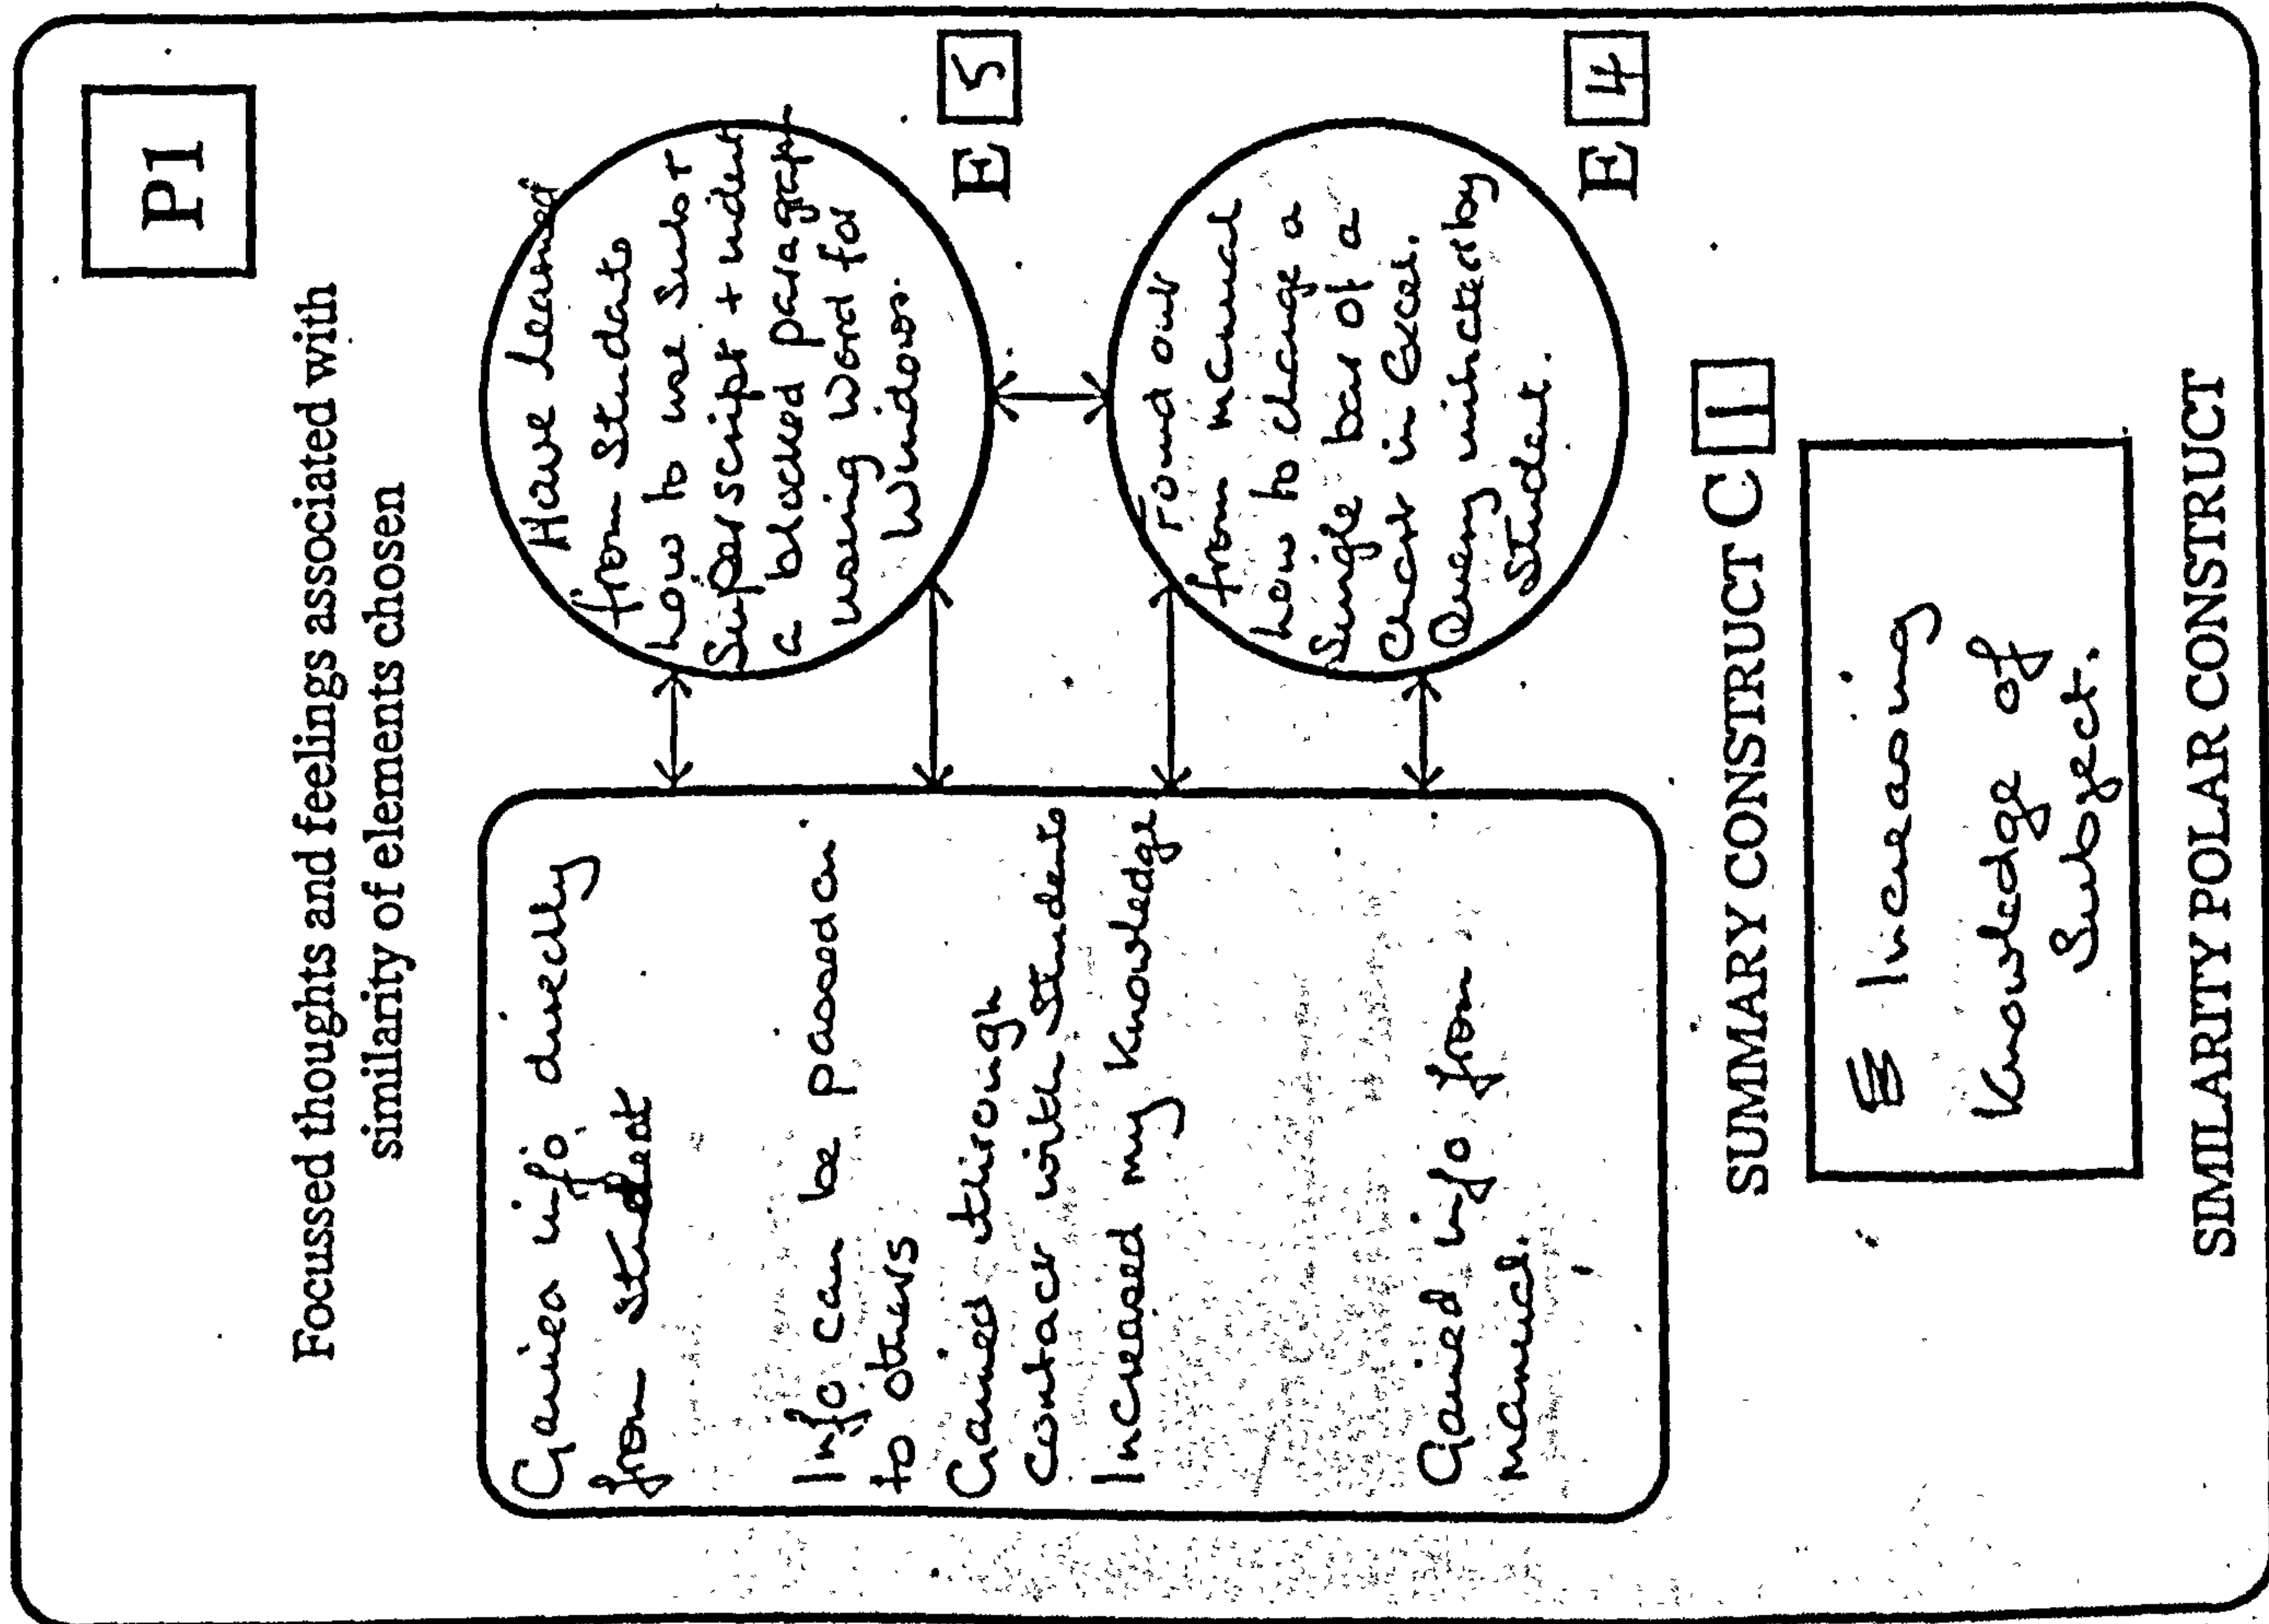 P1
Focussed thoughts and feelings associated with
similarity of elements chosen
Gained info directly
from student
Info can be passed on
to others
Gained through
contact with students
Increased my knowledge
Gained info from
manual.
Have learned
from students
how to use Sub +
Superscript + indent
a blocked paragraph
using Word for
Windows.
E 5
Found out
from manual
how to change a
Single bar of a
chart in Excel.
Query initiated by
Student.
E 4
SUMMARY CONSTRUCT C 1
Increasing
Knowledge of
Subject.
SIMILARITY POLAR CONSTRUCT